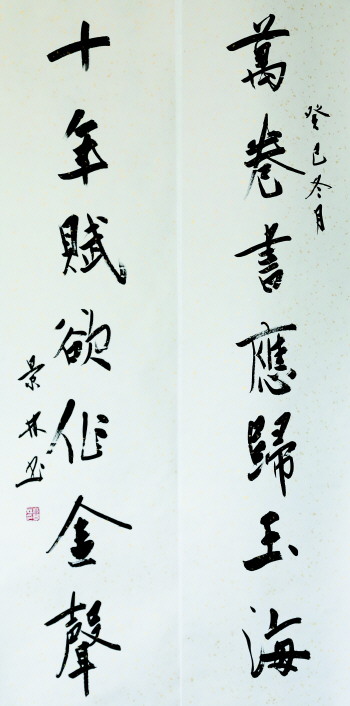 癸巳冬月
萬卷書應歸玉海
十年賦欲作金聲
景林书